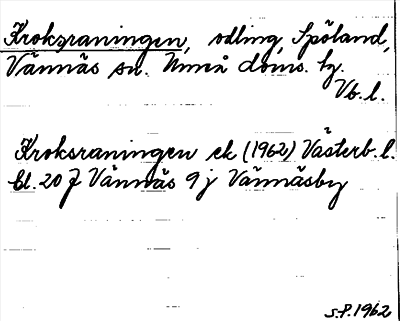 Kroksraningen, odling, Spöland,
Vännäs sn. Umeå doms. tg.
Vb. l.
Kroksraningen ek (1962) Västerb. l.
bl. 20 J Vännäs 9 j Vännäsby
S.P. 1962